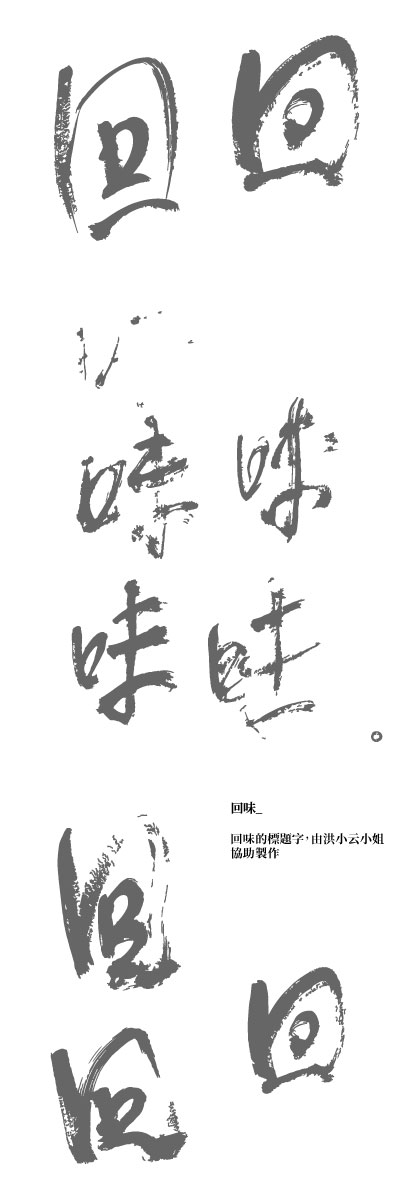 回 回
味 味
味 味
回味_
回味的標題字，由洪小云小姐
協助製作
回
回 回